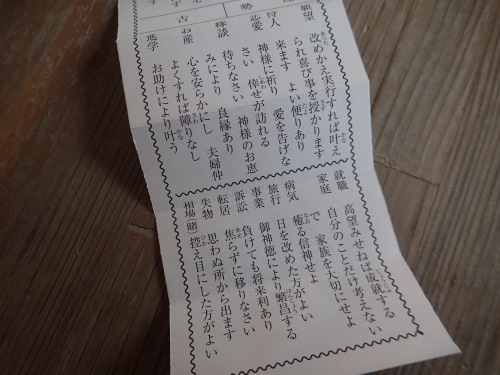 勢
吉
願望 改めかえ実行すれば叶え
られ喜び事を授かります
待人 来ます よい便りあり
恋愛 神様に祈り 愛を告げな
さい 倖せが訪れる
縁談 待ちなさい 神様のお恵
みにより 良縁あり
お産 心を安らかにし 夫婦仲
よくすれば障りなし
進学 お助けにより叶う
就職 高望みせねば成就する
家庭 自分のことだけ考えない
で 家族を大切にせよ
病気 癒る信神せよ
旅行 日を改めた方がよい
事業 御神徳により繁昌する
訴訟 負けても将来利あり
転居 焦らずに移りなさい
失物 思わぬ所から出ます
相場(賭) 控え目にした方がよい